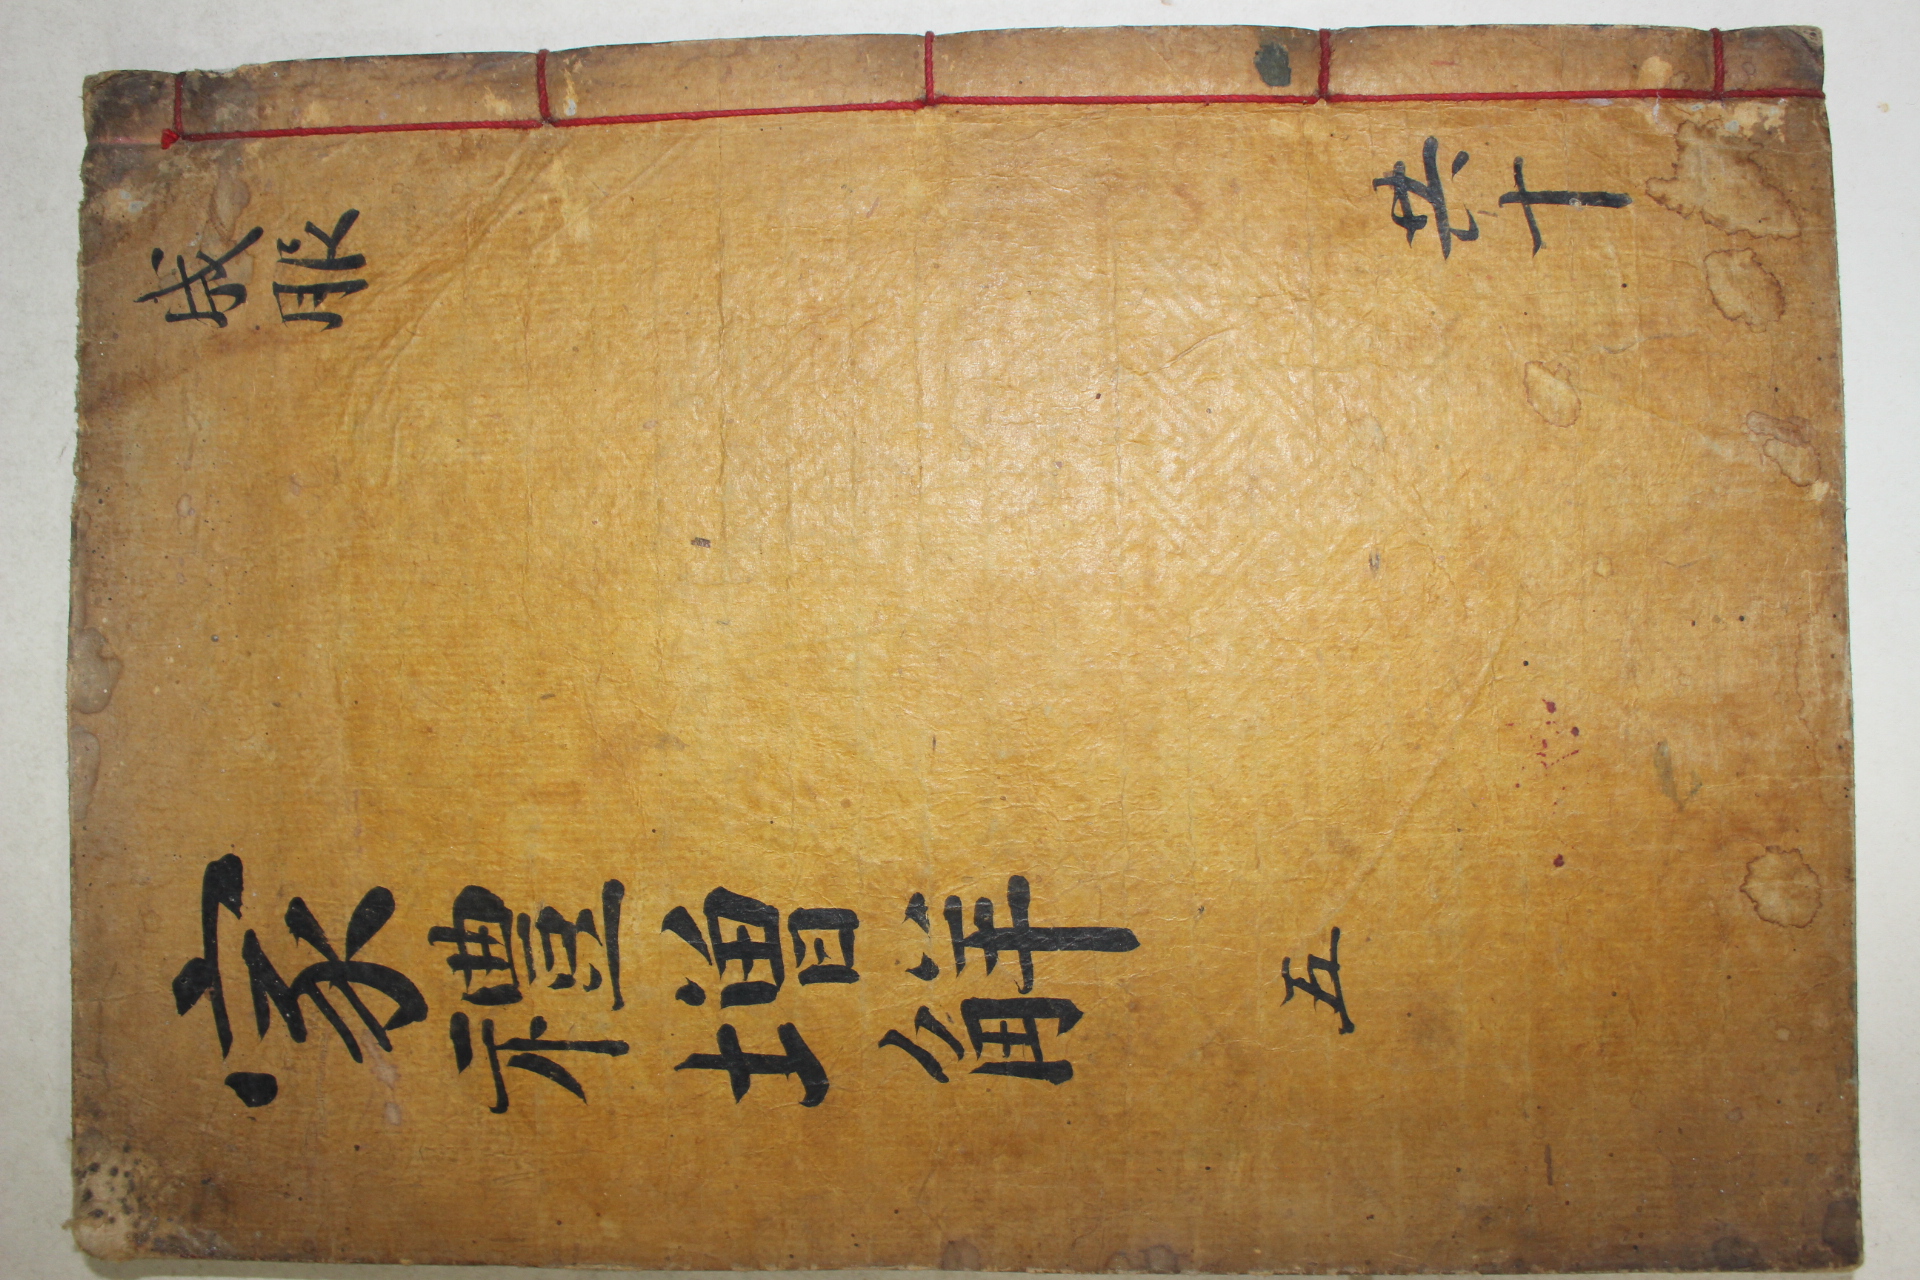 成服
共十
家禮增解
五